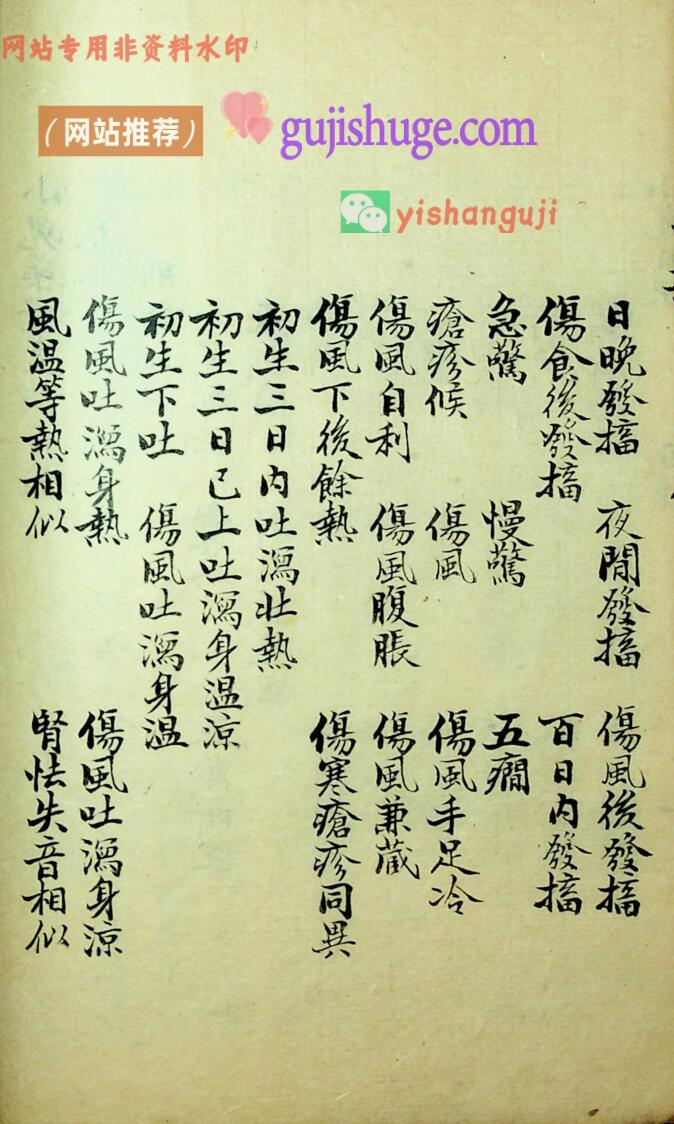 网站专用非资料水印
（网站推荐）
gujishuge.com
yishanguji
日晚發搐 夜間發搐 傷風後發搐
傷食後發搐 百日內發搐
急驚 慢驚 五癇
瘡疹候 傷風 傷風手足冷
傷風自利 傷風腹脹 傷風兼蔵
傷風下後餘熱 傷寒瘡疹同異
初生三日內吐瀉壮熱
初生三日已上吐瀉身温涼
初生下吐 傷風吐瀉身温
傷風吐瀉身熱 傷風吐瀉身涼
風温等熱相似 腎怯失音相似